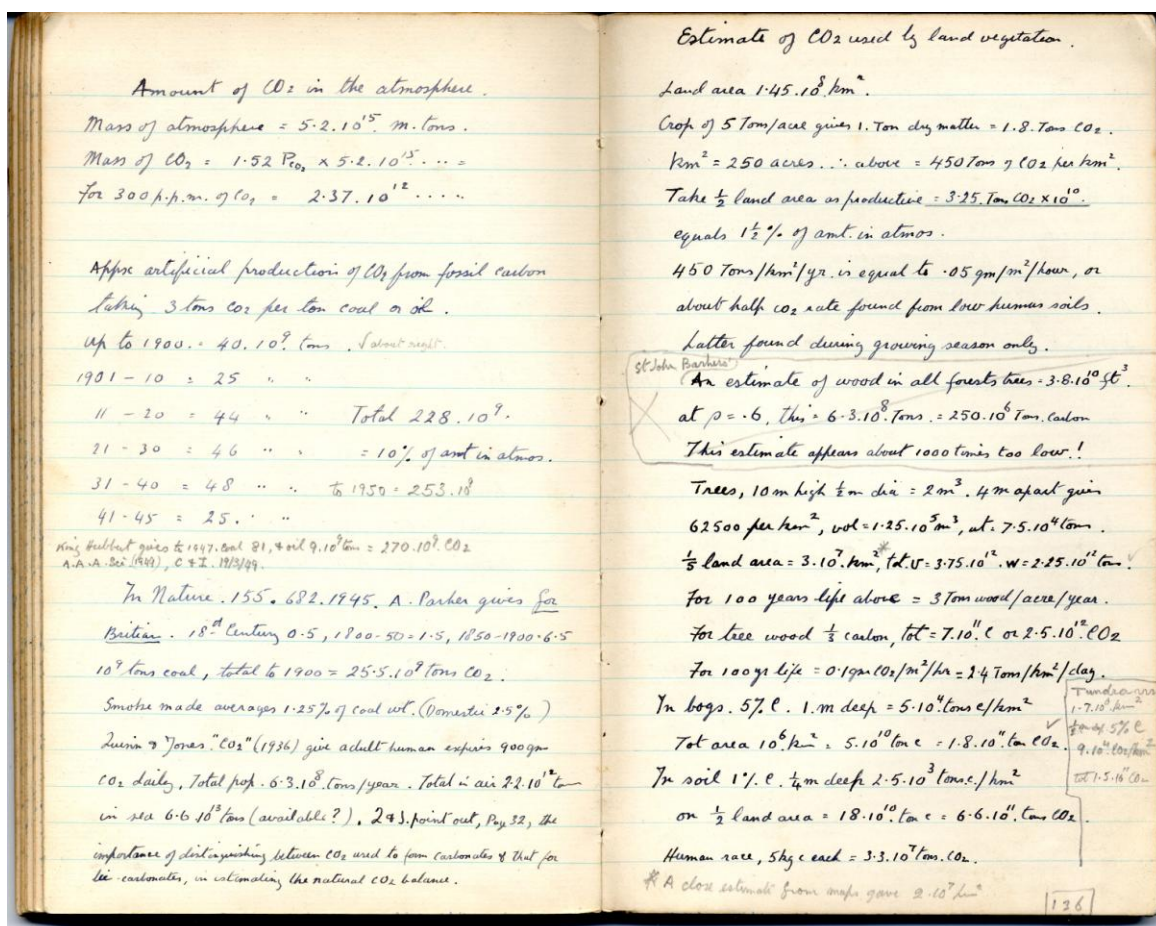 Amount of CO2 in the atmosphere.
Mass of atmosphere = 5·2.10^15. m. tons.
Mass of CO2 = 1·52 Pco2 × 5·2.10^15. .. .. =
For 300 p.p.m. of CO2 = 2·37.10^12 .. ..
Appx artificial production of CO2 from fossil carbon
taking 3 tons CO2 per ton coal or oil.
up to 1900. = 40.10^9. tons. √ about right.
1901 - 10 = 25 " "
11 - 20 = 44 " " Total 228.10^9.
21 - 30 = 46 " " = 10% of amt in atmos.
31 - 40 = 48 " " to 1950 = 253.10^9
41 - 45 = 25. " "
King Hubbert gives to 1947. Coal 81, + oil 9.10^9 tons = 270.10^9. CO2
A.A.A. Sci (1949), C & I. 19/3/49.
In Nature. 155. 682. 1945. A. Parker gives for
Britian. 18th Century 0·5, 1800-50 = 1·5, 1850-1900 = 6·5
10^9 tons coal, total to 1900 = 25·5.10^9 tons CO2.
Smoke made averages 1·25% of coal wt. (Domestic 2·5%)
Quinn & Jones. "CO2" (1936) give adult human expires 900 gm
CO2 daily, Total pop. 6·3.10^8. tons/year. Total in air 2·2.10^12 ton
in sea 6·6 10^13 tons (available?). Q & J. point out, Page 32, the
importance of distinguishing between CO2 used to form carbonates & that for
bi-carbonates, in estimating the natural CO2 balance.
Estimate of CO2 used by land vegetation.
Land area 1·45.10^8. km².
Crop of 5 Tons/acre gives 1. Ton dry matter = 1·8. Tons CO2.
km² = 250 acres. ∴ above = 450 Tons of CO2 per km².
Take ½ land area as productive = 3·25. Tons CO2 × 10^10.
equals 1½% of amt. in atmos.
450 Tons/km²/yr. is equal to ·05 gm/m²/hour, or
about half CO2 rate found from low humus soils.
Latter found during growing season only.
St John Barkers'
An estimate of wood in all forests trees = 3·8.10^10 ft³.
at ρ = ·6, this = 6·3.10^8. Tons. = 250.10^6 Tons. carbon
This estimate appears about 1000 times too low!!
Trees, 10 m high ½ m dia = 2m³. 4m apart gives
62500 per km², vol = 1·25.10^5 m³, wt = 7·5.10^4 tons.
⅕ land area = 3.10^7. km²,* tot. v = 3·75.10^12. w = 2·25.10^12 tons. ✓
For 100 years life above = 3 Tons wood/acre/year.
For tree wood ⅓ carbon, tot = 7.10^11. C or 2·5.10^12. CO2
For 100 yr life = 0·1 gm CO2/m²/hr = 2·4 Tons/km²/day.
In bogs. 5% C. 1. m deep = 5·10^4. tons c/km²
Tot area 10^6. km² = 5.10^10 ton c = 1·8.10^11. ton CO2. ✓
In soil 1% C. ¼ m deep 2·5.10^3 tons. c./km²
on ½ land area = 18·10^10. ton c = 6·6.10^11. tons CO2.
Human race, 5 kg c each = 3·3.10^7 tons. CO2.
* A close estimate from maps gave 2·10^7 km²
Tundra
1·7.10^8. km²
5% C
9.10^4. CO2/km²
tot 1·5.10^11 CO2
136